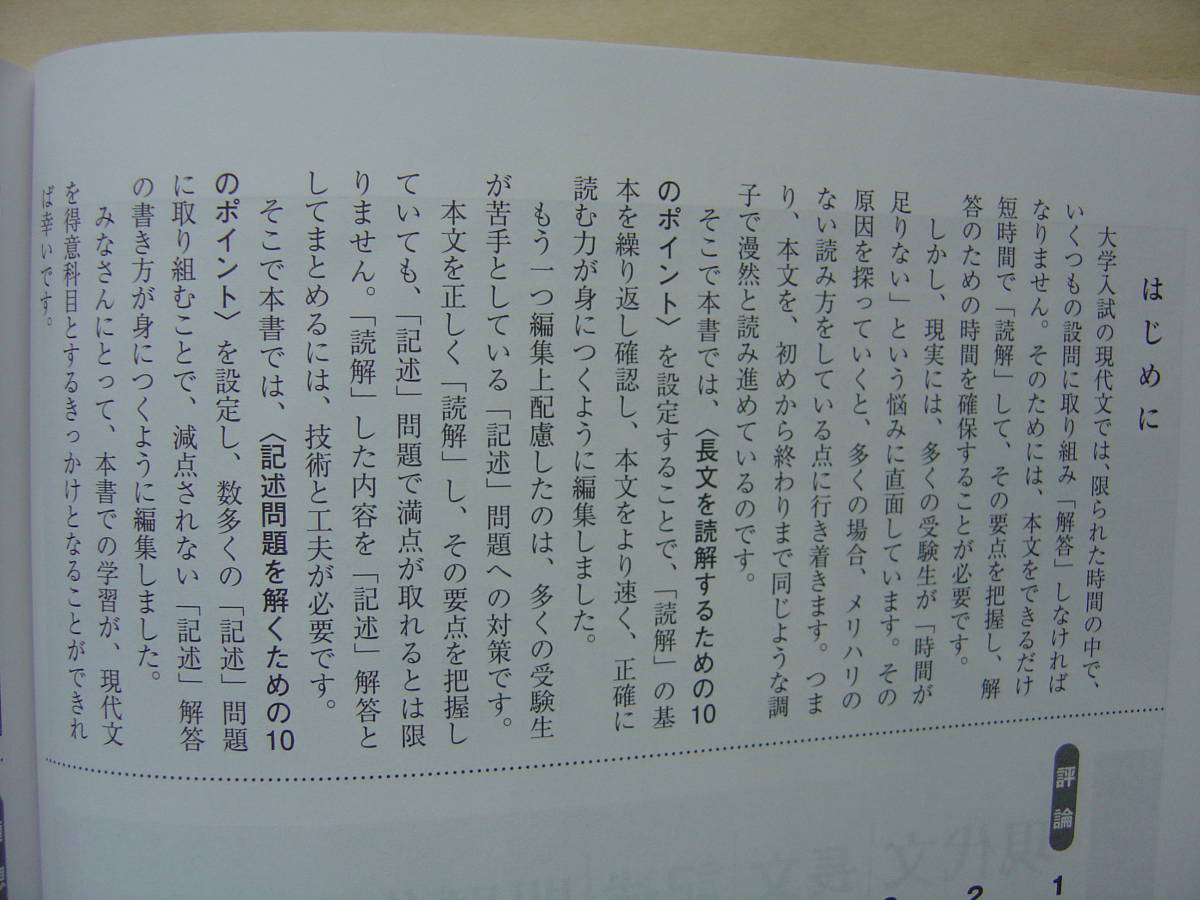 はじめに
大学入試の現代文では、限られた時間の中で、
いくつもの設問に取り組み「解答」しなければ
なりません。そのためには、本文をできるだけ
短時間で「読解」して、その要点を把握し、解
答のための時間を確保することが必要です。
しかし、現実には、多くの受験生が「時間が
足りない」という悩みに直面しています。その
原因を探っていくと、多くの場合、メリハリの
ない読み方をしている点に行き着きます。つま
り、本文を、初めから終わりまで同じような調
子で漫然と読み進めているのです。
そこで本書では、〈長文を読解するための10
のポイント〉を設定することで、「読解」の基
本を繰り返し確認し、本文をより速く、正確に
読む力が身につくように編集しました。
もう一つ編集上配慮したのは、多くの受験生
が苦手としている「記述」問題への対策です。
本文を正しく「読解」し、その要点を把握し
ていても、「記述」問題で満点が取れるとは限
りません。「読解」した内容を「記述」解答と
してまとめるには、技術と工夫が必要です。
そこで本書では、〈記述問題を解くための10
のポイント〉を設定し、数多くの「記述」問題
に取り組むことで、減点されない「記述」解答
の書き方が身につくように編集しました。
みなさんにとって、本書での学習が、現代文
を得意科目とするきっかけとなることができれ
ば幸いです。
評論
1
2